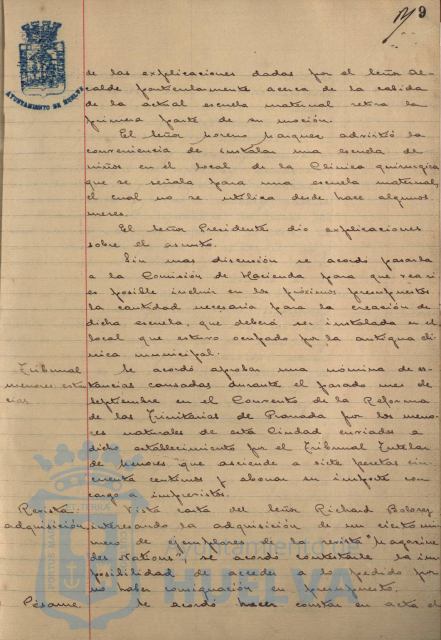 9
AYUNTAMIENTO DE HUELVA
de las explicaciones dadas por el Señor Al-
calde particularmente acerca de la cabida
de la actual escuela maternal retira la
primera parte de su moción.
El Señor Moreno Marquez advirtió la
conveniencia de instalar una escuela de
niños en el local de la Clínica quirurgica
que se señala para una escuela maternal,
el cual no se utiliza desde hace algunos
meses.
El Señor Presidente dio explicaciones
sobre el asunto.
Sin mas discusión se acordó pasarla
a la Comisión de Hacienda para que vea si
es posible incluir en los próximos presupuestos
la cantidad necesaria para la creación de
dicha escuela, que deberá ser instalada en el
local que estuvo ocupado por la antigua cli-
nica municipal.
Tribunal
menores estan
cias
Se acordó aprobar una nómina de es-
tancias causadas durante el pasado mes de
septiembre en el Convento de la Reforma
de las Trinitarias de Granada por los meno-
res naturales de esta Ciudad enviados a
dicho establecimiento por el Tribunal Tutelar
de Menores que asciende a siete pesetas cin-
cuenta centimos y abonar su importe con
cargo a imprevistos.
Revista
adquisición
Vista carta del Señor Richard
interesando la adquisición de un cierto nu-
mero de ejemplares de la revista "Magazine
des Nations", se acordó contestarle la im-
posibilidad de acceder a lo pedido por
no haber consignación en presupuesto.
Pésame.
Se acordó hacer constar en acta el
PORTUS MARIS
TERRAE
Ayuntamiento
HUELVA